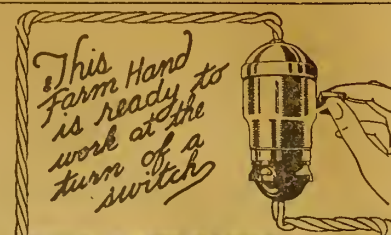 This
Farm Hand
is ready to
work at the
turn of a
switch